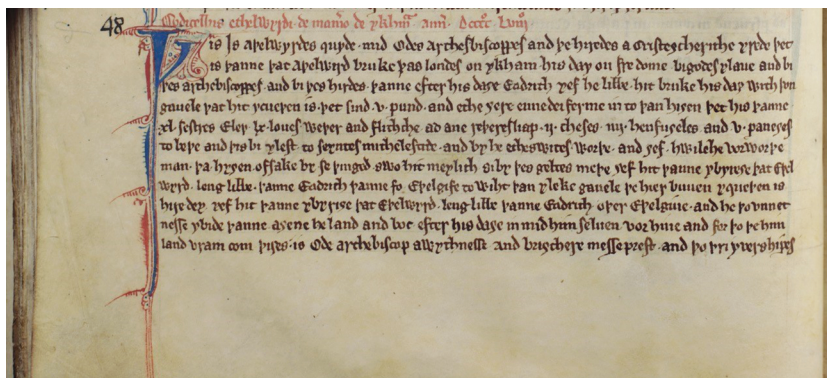 48 Codicellus ethelwyrdi de man̅io de ykham̅. anni. dcccc̊. lviij.
Þis Is aþelwyrdes quyde. mid Odes archesbiscoppes and þe hirdes a Cristescherche yrde þet
is þanne þat aþelwird bruke þas londes on ykham his day on fre dome bi godes ylaue and bi
þes archebiscoppes. and bi þes hirdes. þanne efter his daye Eadrich yef he libbe. hit bruke his day with þon
gauele þat hit ycueþen is. þet sind .v. pund. and eche yere enne dei ferme in to þan hiʒen þet his þanne
xl. sestres Eleþ lx. loues weþer and flichche ad ane .ij. cheses. iiij. henfugeles and .v. paneyes
to boþe and þis bi ylest to seyntes Michelestide. and by he echeswites worþe. and yef. hwilche worworþe
man. þa hyʒen ofsake by se þinged. swo hit meylich si by þes geltes meþe. yef hit þanne ybyrise þat Eþel
wyrd. leng libbe. þanne Eadrich þanne fo. Eþelgife to wiht þan yleke gauele þe hier buuen yqueþen is
hire dey yef hit þanne ybyrise þat Eþelwyrd. leng libbe þanne Eadrich oþer Eþelgiue. and he
nesse ybide þanne aʒene he land and boc efter his daye in mid him seluen. vor hine and for þo þe him
land vram com þises is Ode archebiscop awythnesse and briʒchere messeprest. and